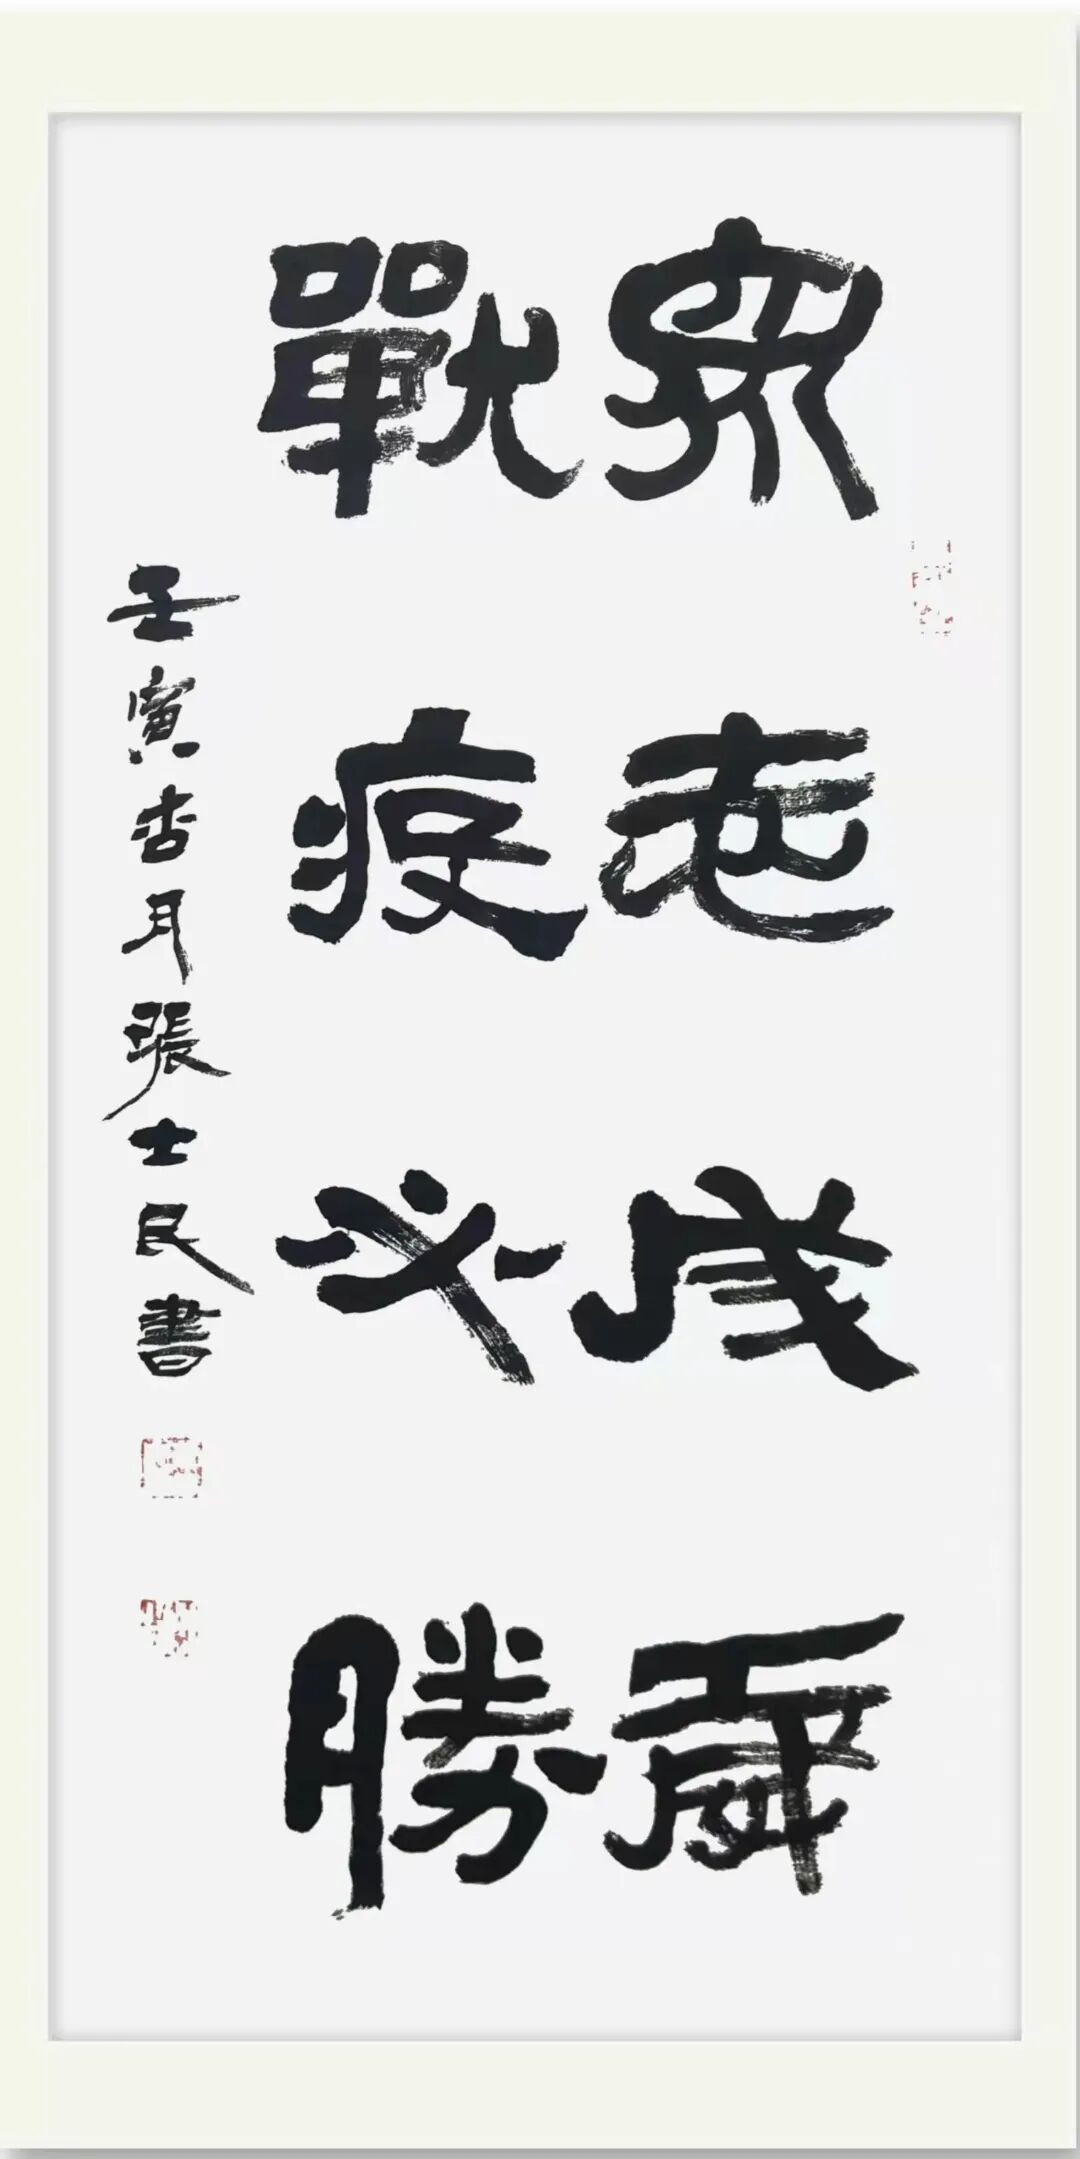 衆志成城
戰疫必勝
壬寅杏月張士民書